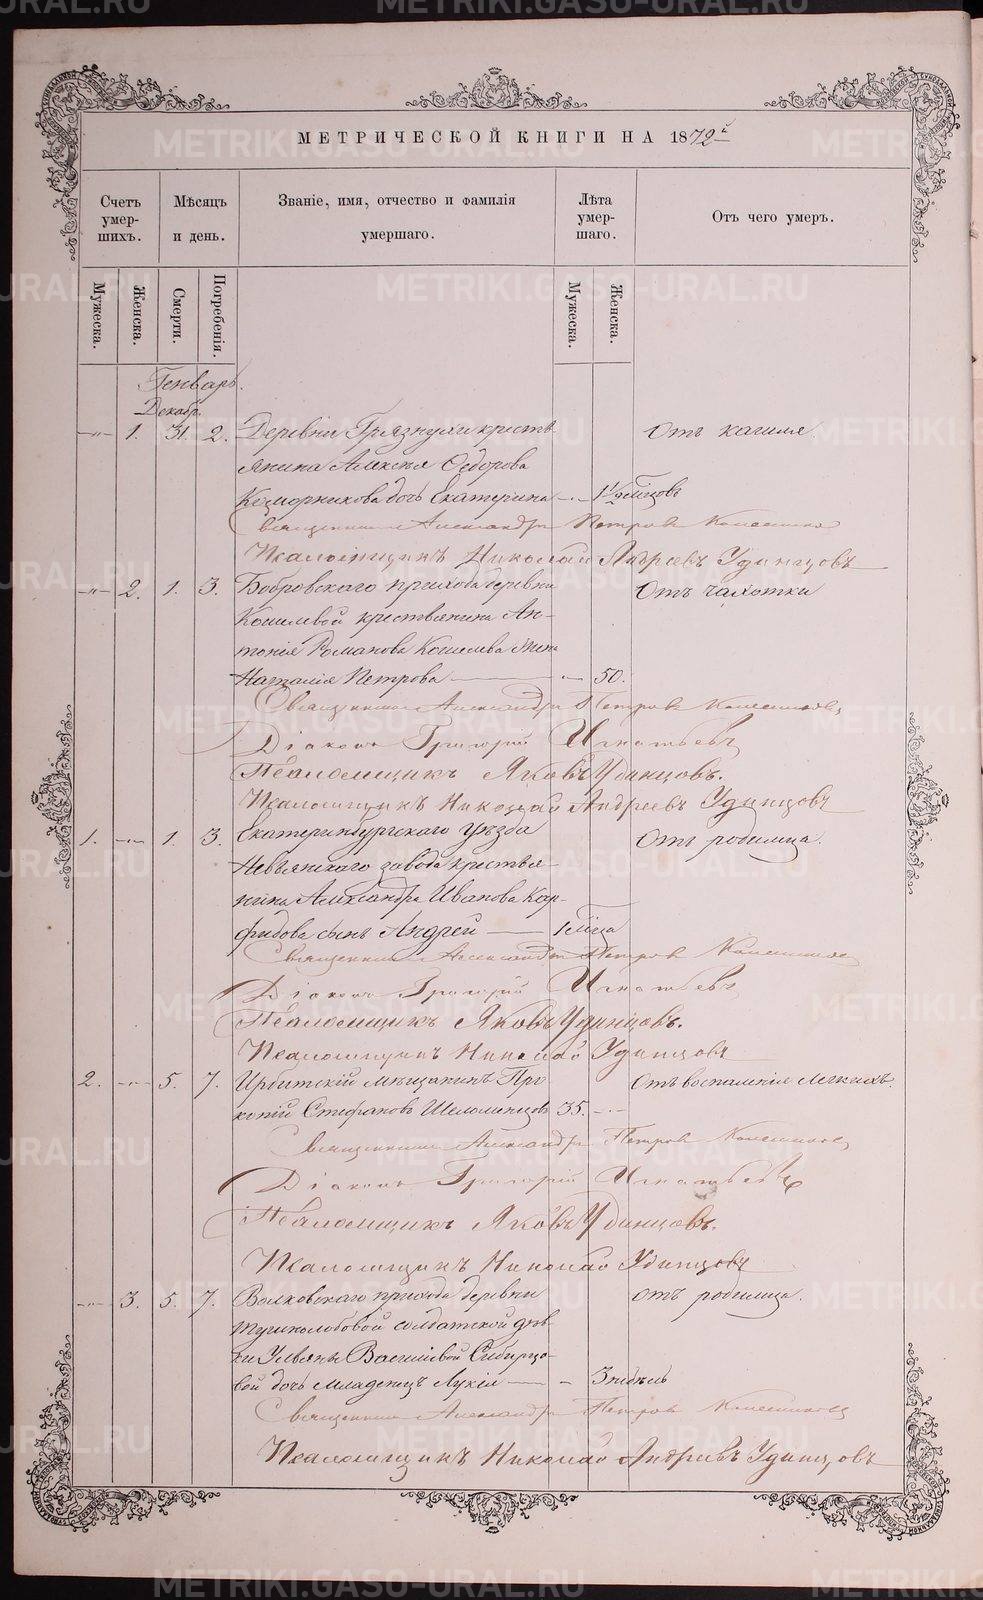 МЕТРИЧЕСКОЙ КНИГИ НА 1872й
Счетъ умер-шихъ.
Мѣсяцъ и день.
Званіе, имя, отчество и фамилія умершаго.
Лѣта умер-шаго.
Отъ чего умеръ.
Мужеска.
Женска.
Смерти.
Погребенія.
Мужеска.
Женска.
Генварь.
Декабр.
1. 31. 2. Деревни Грязнухи кресть- Отъ кашля.
янина Алексѣя Ѳедорова
дочь Екатерина 1½ мѣсцовъ
Священникъ Александръ Петровъ
Псаломщикъ Николай Андреевъ Удинцовъ
2. 1. 3. Бобровскаго прихода деревни Отъ чахотки
Кошелевой крестьянина Ан-
тонія Романова Кошелева жена
Наталія Петрова 50.
Священникъ Александръ Петровъ
Діаконъ Григорій Игнатьевъ
Псаломщикъ Яковъ Удинцовъ.
Псаломщикъ Николай Андреевъ Удинцовъ
1. 1. 3. Екатеринбургскаго уѣзда Отъ родимца.
Невьянскаго завода крестья-
нина Александра Иванова Кор-
фидова сынъ Андрей 1 мѣсца
Священникъ Александръ Петровъ
Діаконъ Григорій Игнатьевъ
Псаломщикъ Яковъ Удинцовъ.
Псаломщикъ Николай Удинцовъ
2. 5. 7. Ирбитскій мѣщанинъ Про- Отъ воспаленія легкихъ.
копій Стефановъ Шеломенцовъ 35.
Священникъ Александръ Петровъ
Діаконъ Григорій Игнатьевъ
Псаломщикъ Яковъ Удинцовъ.
Псаломщикъ Николай Удинцовъ
3. 5. 7. Волковскаго прихода деревни отъ родимца.
солдатской дѣв-
ки Ульяны Васильевой Сибирцо-
вой дочь младенецъ Лукія 3 недѣль
Священникъ Александръ Петровъ
Псаломщикъ Николай Андреевъ Удинцовъ
METRIKI.GASO-URAL.RU